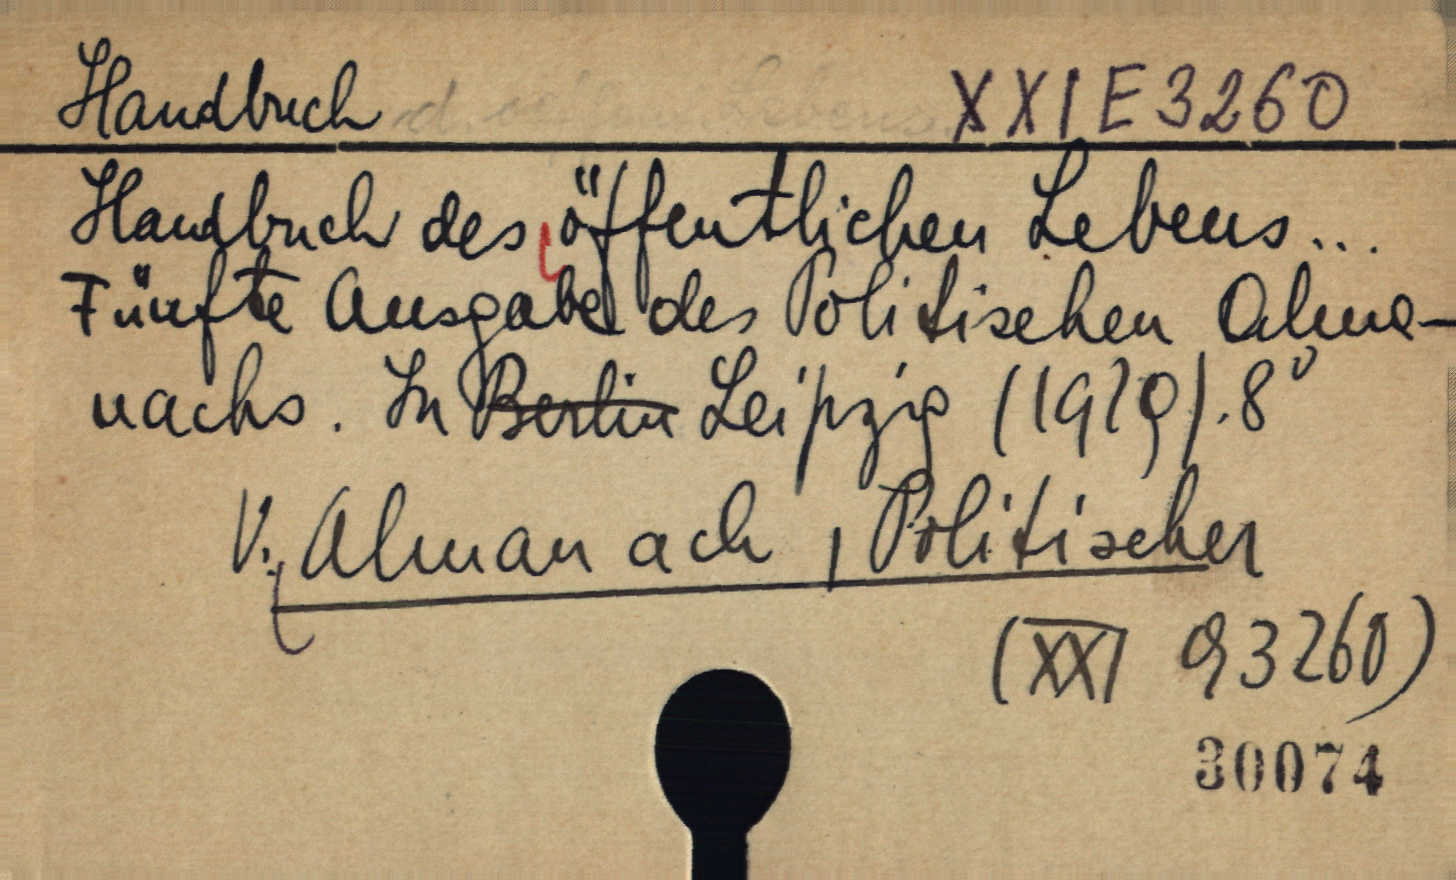 Handbuch d. öffentl. Lebens. XXI E 3260
Handbuch des öffentlichen Lebens...
Fünfte Ausgabe des Politischen Alma-
nachs. In Berlin Leipzig (1929). 8°
V. Almanach, Politischer
(XXI 93260)
30074